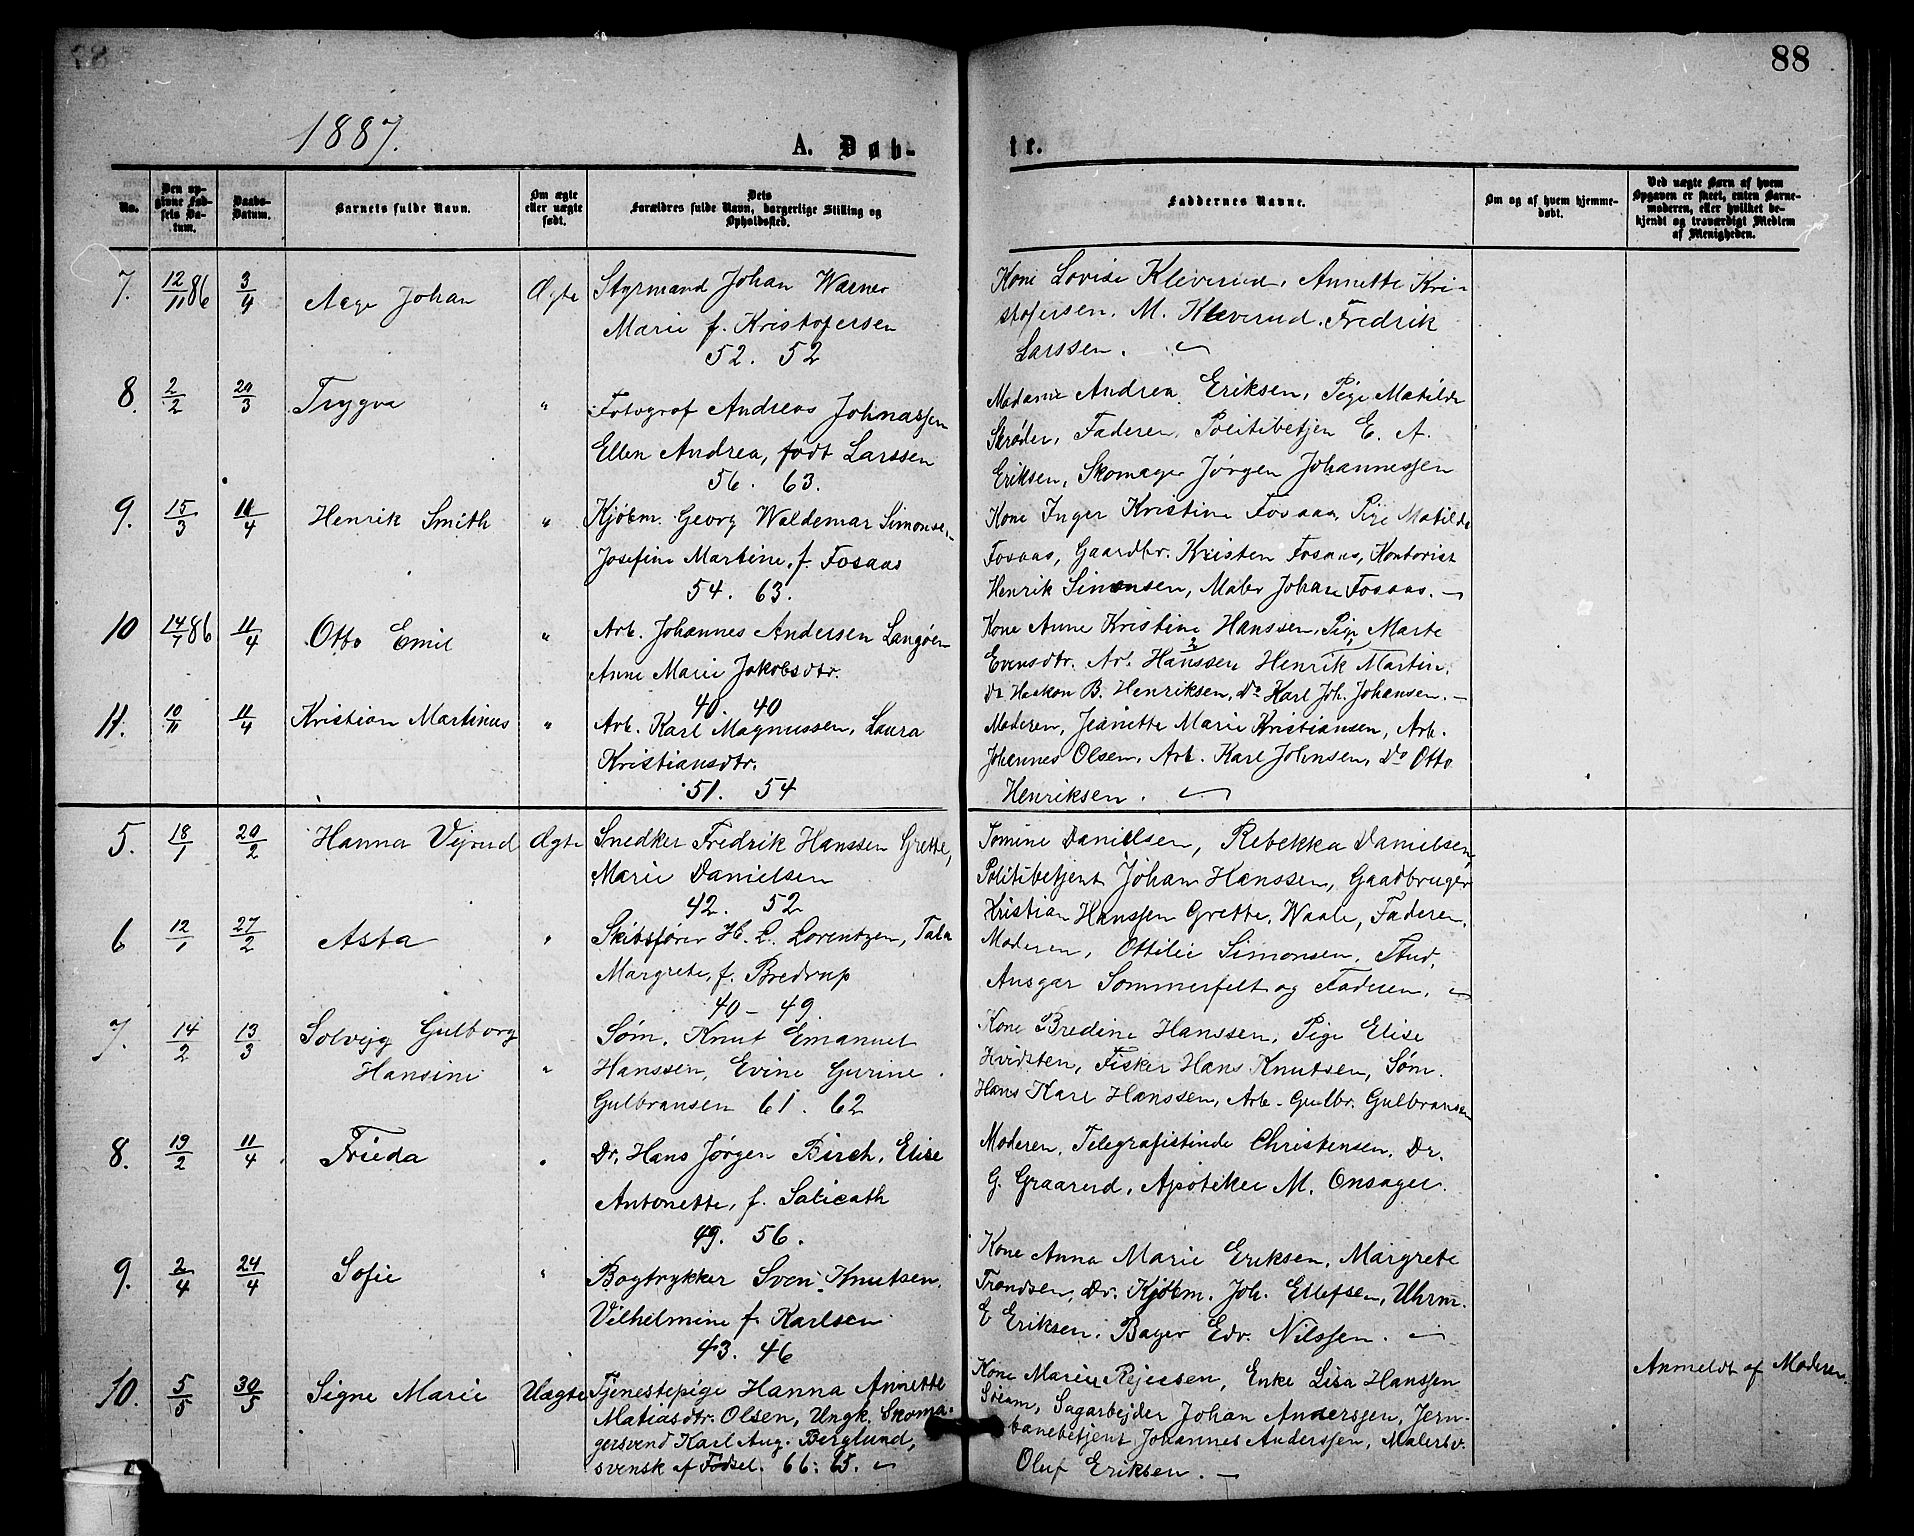 88
1887.
A. Døb-
te.
No.
Den op-
givne Fød-
sels Da-
tum.
Daabs-
Datum.
Barnets fulde Navn.
Om ægte
eller uægte
født.
Dets
Forældres fulde Navn, borgerlige Stilling og
Opholdssted.
Faddernes Navne.
Om og af hvem hjemme-
døbt.
Ved uægte Børn af hvem
Opgaven er skeet, enten Barne-
moderen, eller hvilket be-
kjendt og troværdigt Medlem
af Menigheden.
7. 12/11 86 3/4 Aage Johan Ægte
Styrmand Johan Warner
Marie f. Kristofersen
52. 52
Kone Lovise Kleverud, Annette Kri-
stofersen, M. Kleverud, Fredrik
Larssen.
8. 2/2 20/3 Trygve "
Fotograf Andreas Johnassen
Ellen Andrea, født Larssen
56. 63.
Madame Andrea Eriksen, Pige Matilde
Skrøder, Faderen, Politibetjen E. A.
Eriksen, Skomager Jørgen Johannessen
9. 15/3 11/4 Henrik Smith "
Kjøbm. Georg Waldemar Simonsen
Josefine Martine, f. Fosaas
54. 63.
Kone Inger Kristine Fosaas, Pige Matilde
Fosaas, Gaardbr. Kristen Fosaas, Kontorist
Henrik Simonsen, Maler Johan Fosaas.
10 14/7 86 11/4 Otto Emil "
Arb. Johannes Andersen Langøen
Anne Marie Jakobsdtr.
40. 40
Kone Anne Kristine Hanssen, Pige Marte
Evensdtr. Ar. Hanssen Henrik Martin,
Do Haakon B. Henriksen, Do Karl Joh. Johansen.
11. 10/11 11/4 Kristian Martinus "
Arb. Karl Magnussen, Laura
Kristiansdtr.
51. 54
Moderen, Jeanette Marie Kristiansen, Arb.
Johannes Olsen, Arb. Karl Johnsen, Do Otto
Henriksen.
5. 18/1 20/2 Hanna Vejrud Ægte
Snedker Fredrik Hanssen Grette,
Marie Danielsen
42. 52
Tomine Danielsen, Rebekka Danielsen,
Politibetjent Johan Hanssen, Gaadbruger
Kristian Hanssen Grette, Vaale, Faderen.
6 12/1 27/2 Asta "
Skibsfører H. L. Lorentzen, Tala
Margrete, f. Bredrup
40 - 49.
Moderen, Ottilie Simonsen, Stud.
Ansgar Sommerfelt og Faderen.
7. 14/2 13/3 Solvejg Gulborg
Hansine "
Søm. Knut Emanuel
Hanssen, Evine Gurine
Gulbransen 61. 62
Kone Bredine Hanssen, Pige Elise
Hvidsten, Fisker Hans Knutsen, Søm.
Hans Karl Hanssen, Arb. Gulbr. Gulbransen
8. 19/2 11/4 Frieda "
Dr. Hans Jørgen Birch, Elise
Antonette, f. Salicath
49. 56.
Moderen, Telegrafistinde Christensen, Dr.
G. Graarud, Apotiker M. Onsager.
9. 2/4 24/4 Sofie "
Bogtrykker Sven Knutsen,
Vilhelmine f. Karlsen
43. 46
Kone Anna Marie Eriksen, Margrete
Trondsen, Dr. Kjøbm. Joh. Ellefsen, Uhrm.
E Eriksen, Bager Edv. Nilssen.
10. 5/5 30/5 Signe Marie Uægte
Tjenestepige Hanna Annette
Matiasdtr. Olsen, Ungk. Skoma-
gersvend Karl Aug. Berglund,
svensk af Fødsel. 66. 65.
Kone Marie Rejersen, Enke Lisa Hanssen
Sagarbejder Johan Anderssen, Jern-
banebetjent Johannes Anderssen, Malersv.
Oluf Eriksen.
Anmeldt af Moderen.